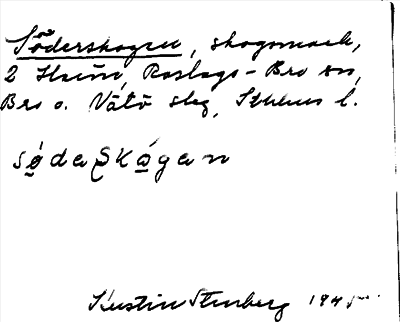 Söderskogen, skogsmark,
2 Hamn, Roslags-Bro sn,
Bro o. Vätö slg, Sthlms l.
sødaSkógan
Kerstin Stenberg 1945